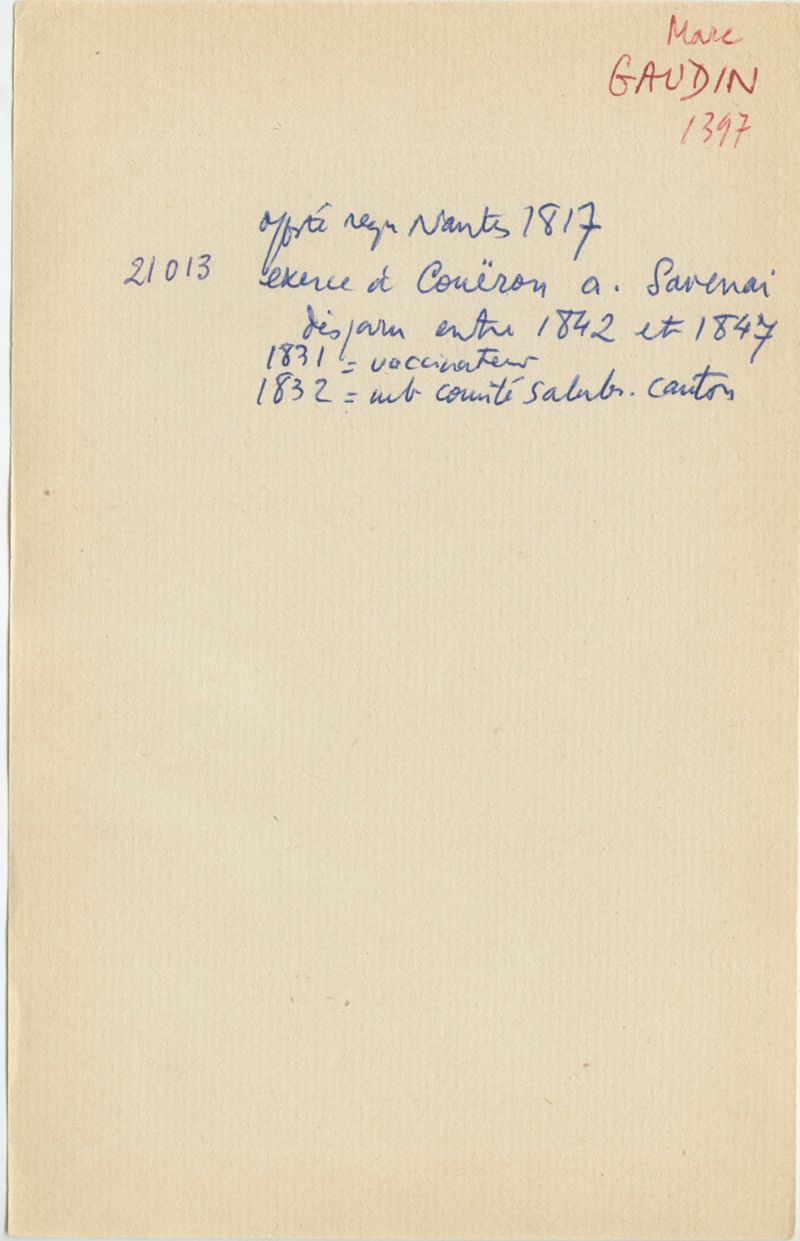 Marc
GAUDIN
1397
offté reçu Nantes 1817
21013 exerce à Couëron a. Savenai
disparu entre 1842 et 1847
1831 = vaccinateur
1832 = mb comité salubr. canton